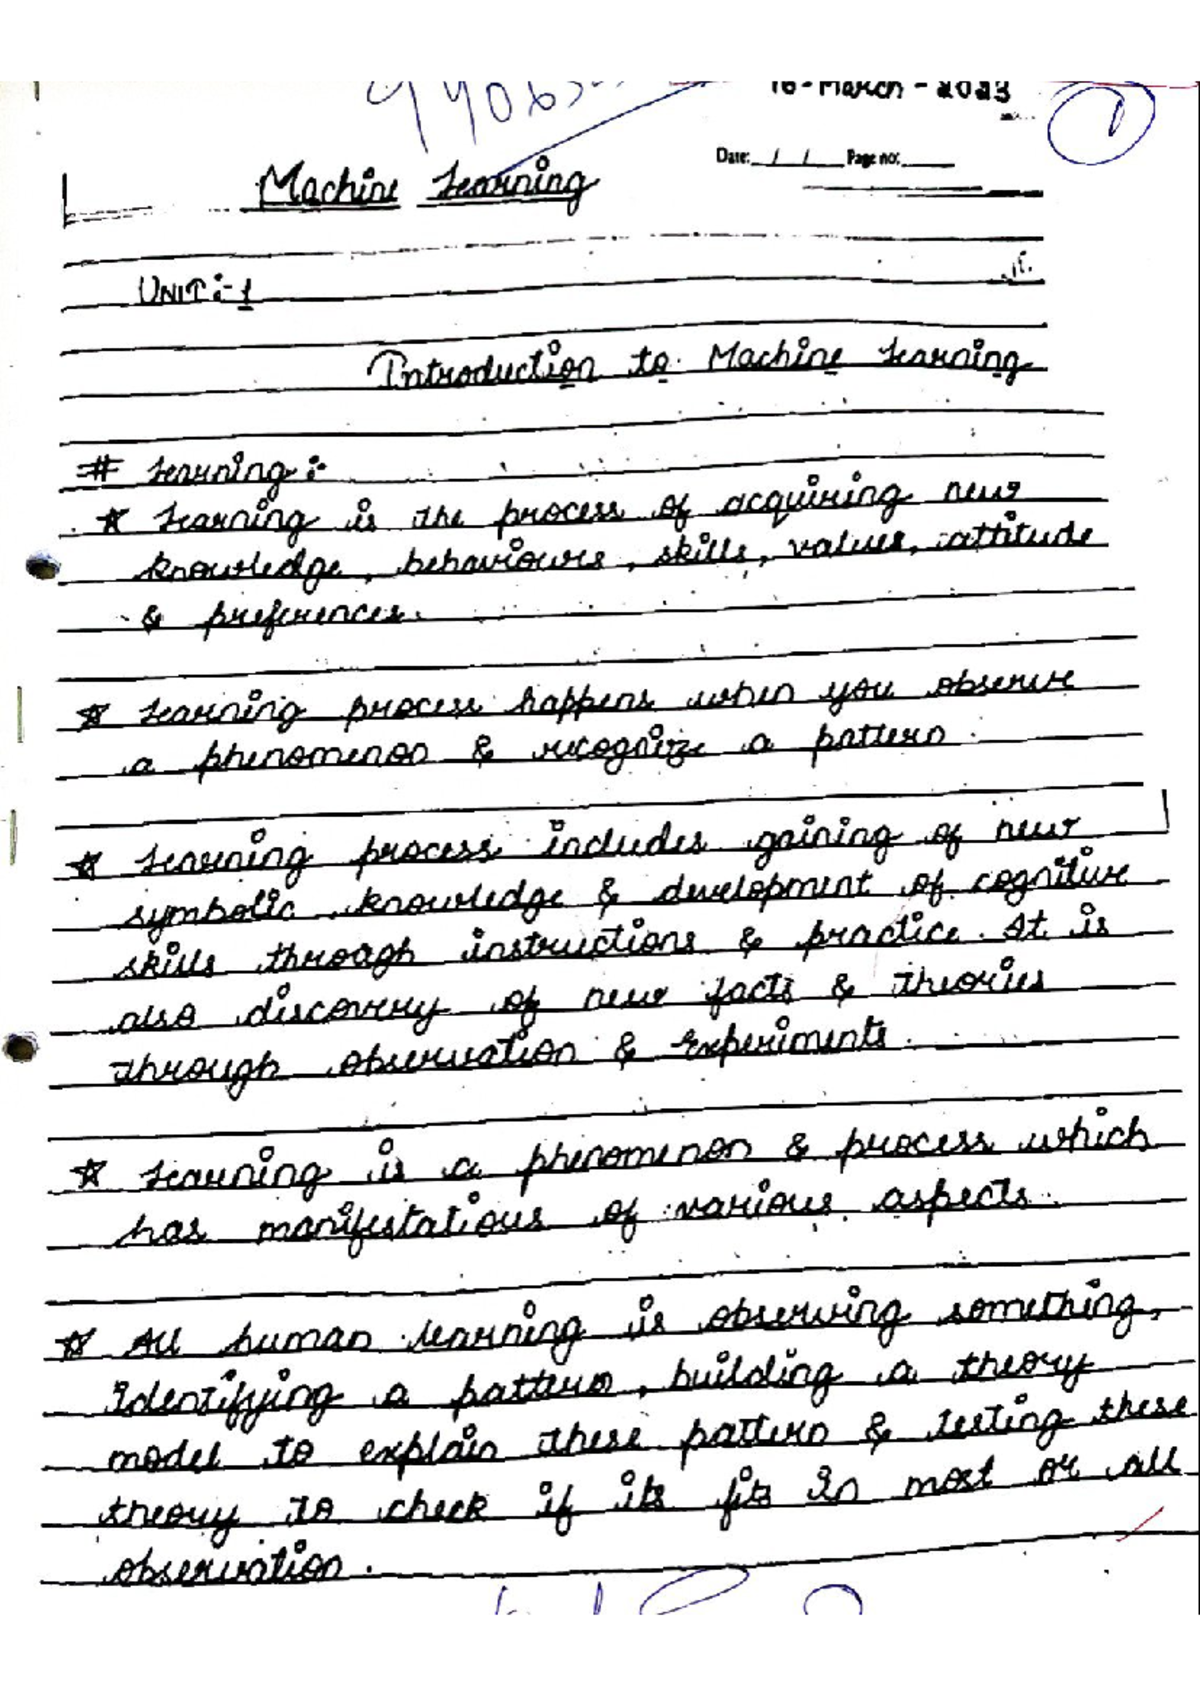 16-March-2023
1
Date: / / Page no:
Machine Learning
UNIT:-1
Introduction to Machine Learning
# Learning :-
☆ Learning is the process of acquiring new
knowledge, behaviours, skills, values, attitude
& preferences.
☆ Learning process happens when you observe
a phenomenon & recognize a pattern.
☆ Learning process includes gaining of new
symbolic knowledge & development of cognitive
skills through instructions & practice. It is
also discovery of new facts & theories
through observation & experiments.
☆ Learning is a phenomenon & process which
has manifestations of various aspects.
☆ All human learning is observing something,
identifying a pattern, building a theory
model to explain these pattern & testing these
theory to check if its fits in most or all
observation.